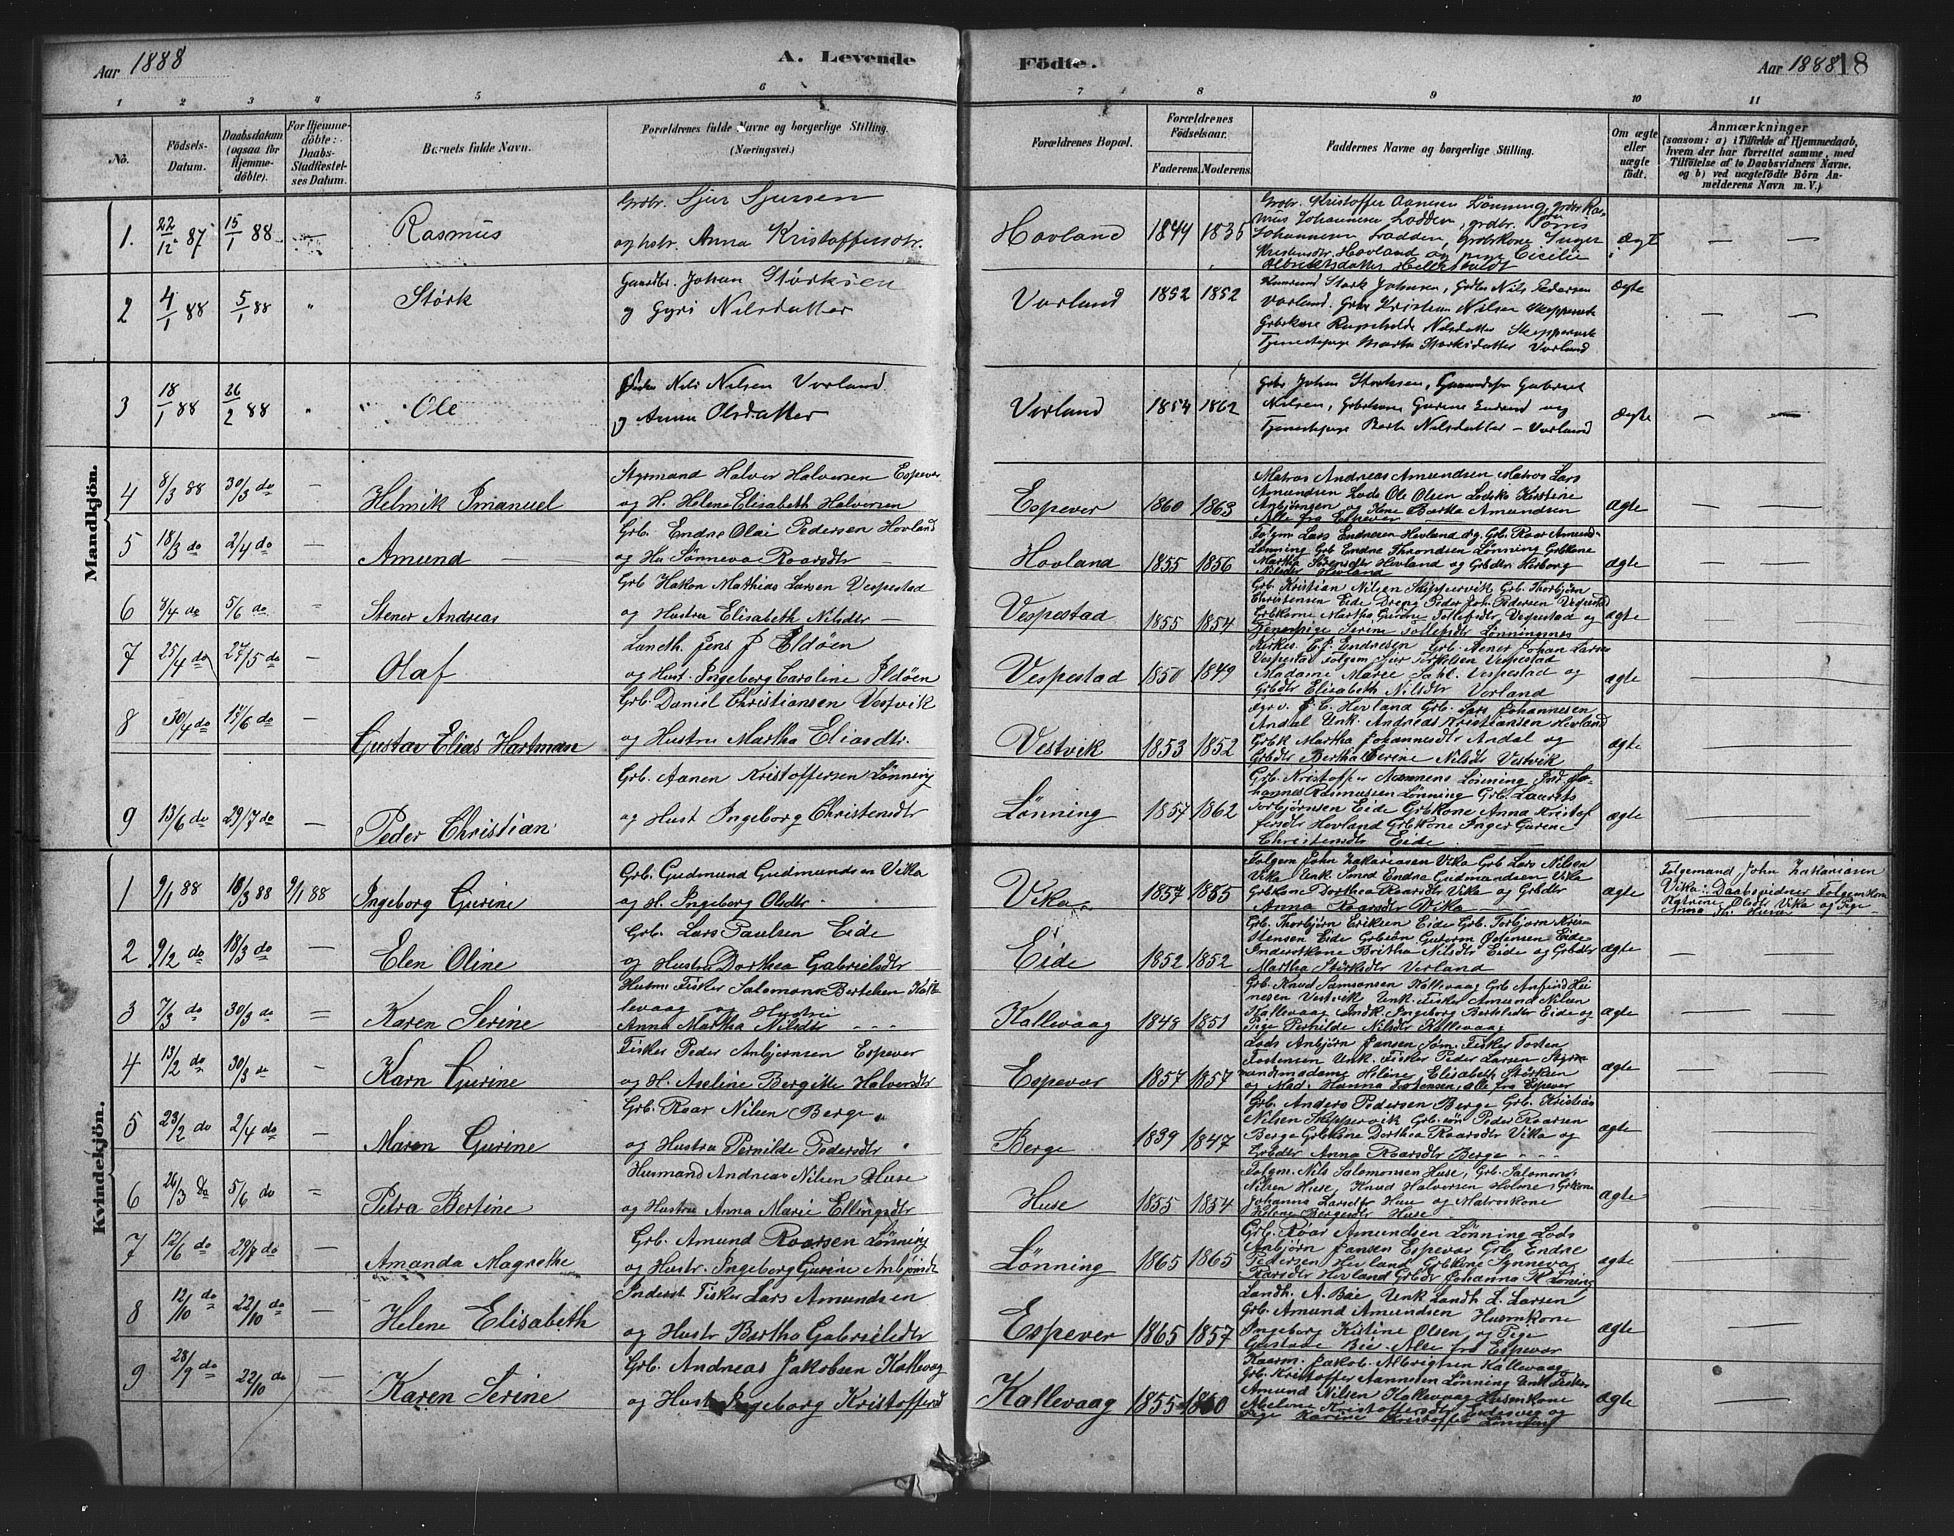 Aar 1888
A. Levende Födte.
Aar 1888 18
1 2 3 4 5 6 7 8 9 10 11
No.
Födsels-Datum.
Daabsdatum (ogsaa for Hjemmedöbte).
For Hjemmedöbte: Daabs-Stadfæstelses Datum.
Barnets fulde Navn.
Forældrenes fulde Navne og borgerlige Stilling. (Næringsvei.)
Forældrenes Bopæl.
Forældrenes Födselsaar.
Faderens. Moderens.
Faddernes Navne og borgerlige Stilling.
Om ægte eller uægte födt.
Anmærkninger
(saasom: a) i Tilfælde af Hjemmedaab, hvem der har forrettet samme, med Tilföielse af to Daabsvidners Navne, og b) ved uægtefödte Börn Anmelderens Navn m. V.)
Mandkjön.
1. 22/12 87 15/1 88 — Rasmus
Grdbr. Sjur Sjursen
og hstr. Anna Kristoffersdtr.
Hovland 1844 1835
Grdbr. Kristoffer Aanesen Lönning, grdbr. Ras-
mus Johannesen Ladden, grdbr. Töres
Johannesen Ladden, grdbrkone Inger
Kristensdtr. Hovland og pige Cecilie
Albrektsdatter
ægte — —
2 4/1 88 5/1 88 " Störk
Gaardbr. Johan Störksen
og Gyri Nilsdatter
Vorland 1852 1852
Störk Johnsen, Grdbr Nils Pedersen
Vorland. Grbr Kristian Nilsen Skeppevik
Grbrkone Ragnhilde Nilsdatter Skeppevik
Tjenestepige Marta Störksdatter Vorland
ægte — —
3 18/1 88 26/2 88 " Ole
Nils Nilsen Vorland
og Anna Olsdatter
Vorland 1854 1862
Grbr Johan Störksen, Gabriel
Nilsen, Grbrkone Gurine og
Tjenestepige Berte Nilsdatter – Vorland
ægte — —
4 8/3 88 30/3 do — Helmik Imanuel
Styrmand Halver Halversen Espevær
og H. Helene Elisabeth Halversen
Espever 1860 1863
Matros Andreas Amundsen Matros Lars
Amundsen Lods Ole Olsen Lodsko Kirstine
Anbjörnsen og Kone Bertha Amundsen
Alle fra Espever
ægte —
5 18/3 do 2/4 do — Amund
Grb. Endre Olai Pedersen Hovland
og Hu Sönneva Roarsdtr
Hovland 1855 1856
Folgm Lars Endresen Hovland og Grb. Roar Amund-
Lönning Grb Endre Throndsen Lönning Grbkone
Martha Sörensdtr Hovland og Grbdtr Herborg
Nilsdtr Hovland
ægte —
6 8/4 do 5/6 do " Stener Andreas
Grb Hakon Mathias Larsen Vespestad
og Hustru Elisabeth Nilsdtr —
Vespestad 1855 1854
Grb. Kristian Nilsen Skippervik Grb. Thorbjörn
Christensen Eide Dreng Peder Joh. Pedersen Vespestad
Grbkone Martha Gurine Tollefsdtr Vespestad og
Tjenerpige Serine Tollefsdtr Lönningnes
ægte —
7 25/4 do 27/5 do — Olaf
Landh. Jens J Eldöen
og Hust. Ingeborg Caroline Ildöen
Vespestad 1850 1849
Kirkes. E. J. Endresen Grb. Aener Johan Larsen
Vespestad Folgem Sjur Torkelsen Vespestad
Madame Marie Dahl Vespestad og
Grbdtr Elisabeth Nilsdtr Vorland
ægte —
8 30/4 do 17/6 do — Gustav Elias Hartman
Grb. Daniel Christiansen Vestvik
og Hustru Martha Eliasdtr.
Vestvik 1853 1852
J. C. Hovland Grb. Lars Johannesen
Andal Unk. Andreas Kristiansen Hovland
Grbk Martha Johannesdtr Ardal og
Grbdtr Bertha Serine Nilsdtr Vestvik
ægte —
9 13/6 do 29/7 do — Peder Christian
Grb. Aanen Kristoffersen Lönning
og Hust Ingeborg Christensdtr
Lönning 1857 1862
Grb. Kristoffer Aannens Lönning Jo-
hannes Rasmussen Lönning Grb. Laurits
Torbjörnsen Eide Grbkone Anna Kristof
fersdtr Hovland Grbkone Inger Gurene
Christensdtr Eide
ægte —
Kvindekjön.
1 9/1 88 18/3 88 9/1 88 Ingeborg Gurine
Grb. Gudmund Gudmundsen Vika
og H. Ingeborg Olsdtr
Vika 1857 1855
Folgem John Zakariasen Vika Grb Lars Nilsen
Vika Unk. Smed Endre Gudmundsen Vika
Grbkone Dorthea Roarsdtr Vika og Grbdtr
Anna Roarsdtr Vika
ægte
Folgemand John Zakariasen
Vika: Daabsvidner Folgem Kone
Katrine Olsdtr Vika og Pige
Anna
2 9/2 do 18/3 do — Elen Oline
Grb. Lars Paulsen Eide
og Hustru Dorthea Gabrielsdtr
Eide 1852 1852
Grb. Thorbjörn Eriksen Eide Grb. Torbjörn Kris-
tensen Eide Grbsön Gutorm Östensen Eide
Inderstkone Britha Nilsdtr Eide og Grbdtr
Martha Störksdtr Verland
ægte —
3 7/3 do 30/3 do = Karen Serine
Husm. Fisker Salomon Bertelsen Kal-
levaag og Hustru
Anna Martha Nilsdtr
Kallevaag 1848 1851
Grb. Knud Samsonsen Kallevaag Grb Anfind Hei-
nesen Vestvik Unk. Fisker Amund Nilsen
Kallevaag Ingeborg Bertelsdtr Eide og
Pige Pernilde Nilsdtr Kallevaag
ægte —
4 13/2 do 30/3 do — Karn Gurine
Fisker Peder Anbjörnsen Espever
og H. Aseline Bergitte Halversdtr
Espevar 1857 1857
Lods Anbjörn Jansen Söm. Fisker Torsten
Torstensen Unk. Fisker Peder Larsen Styrm-
andsmadame Helene Elisabeth Störksen
og Mad. Hanna Torstensen, alle fra Espever
ægte —
5 23/2 do 2/4 do — Maren Gurine
Grb. Roar Nilsen Berge
og Hustru Pernilde Pedersdtr
Berge 1839 1847
Grb. Anders Pedersen Berge Grb. Kristian
Nilsen Skippervik Grb. sön Peder Roarsen
Berge Grbkone Dorthea Roarsdtr Vika og
Grbdtr Anna Roarsdtr Berge
ægte —
6 26/3 do 5/6 do = Petra Bertine
Husmand Andreas Nilsen Huse
og Hustru Anna Marie Ellingsdtr
Huse 1855 1854
Folgm. Nils Salomonsen Huse, Grb. Salomon
Nilsen Huse, Knud Halversen Holme, Grkone
Johanna Larsdtr Huse og Matroskone
Helene Bergesdtr Huse
ægte —
7 12/6 do 29/7 do — Amanda Magrethe
Grb. Amund Roarsen Lönning
og Hustr. Ingeborg Gurine Anbjönsdt
Lönning 1865 1865
Grb. Roar Amundsen Lönning Lods
Anbjörn Jansen Espevar Grb. Endre
Pedersen Hovland Grbkone Synneva
Roarsdtr Hovland Grbdtr Johanna R. Lönning
ægte —
8 12/10 do 22/10 do — Helene Elisabeth
Inderst Fisker Lars Amundsen
og Hustr Bertha Gabrielsdtr
Espever 1865 1857
Landh. A. Bæ Unk Landh L. Larsen
Grb. Amund Amundsen Husmkone
Ingeborg Kistine Olsen og Pige
Gustava Bie Alle fra Espevar
ægte —
9 28/9 do 22/10 do — Karen Serine
Grb. Andreas Jakobsen Kallevaag
og Hust Ingeborg Kristoffersd
Kallevaag 1855 1860
Kaarm. Jakob Albrigtsen Kallevaag
Grb. Kristoffer Aannesen Lönning Unk Fisker
Amund Nilsen Kallevaag Husmkone
Abelone Kristoffersdtr Eidesvig og
Pige Karine Kristoffer Lönning
ægte —